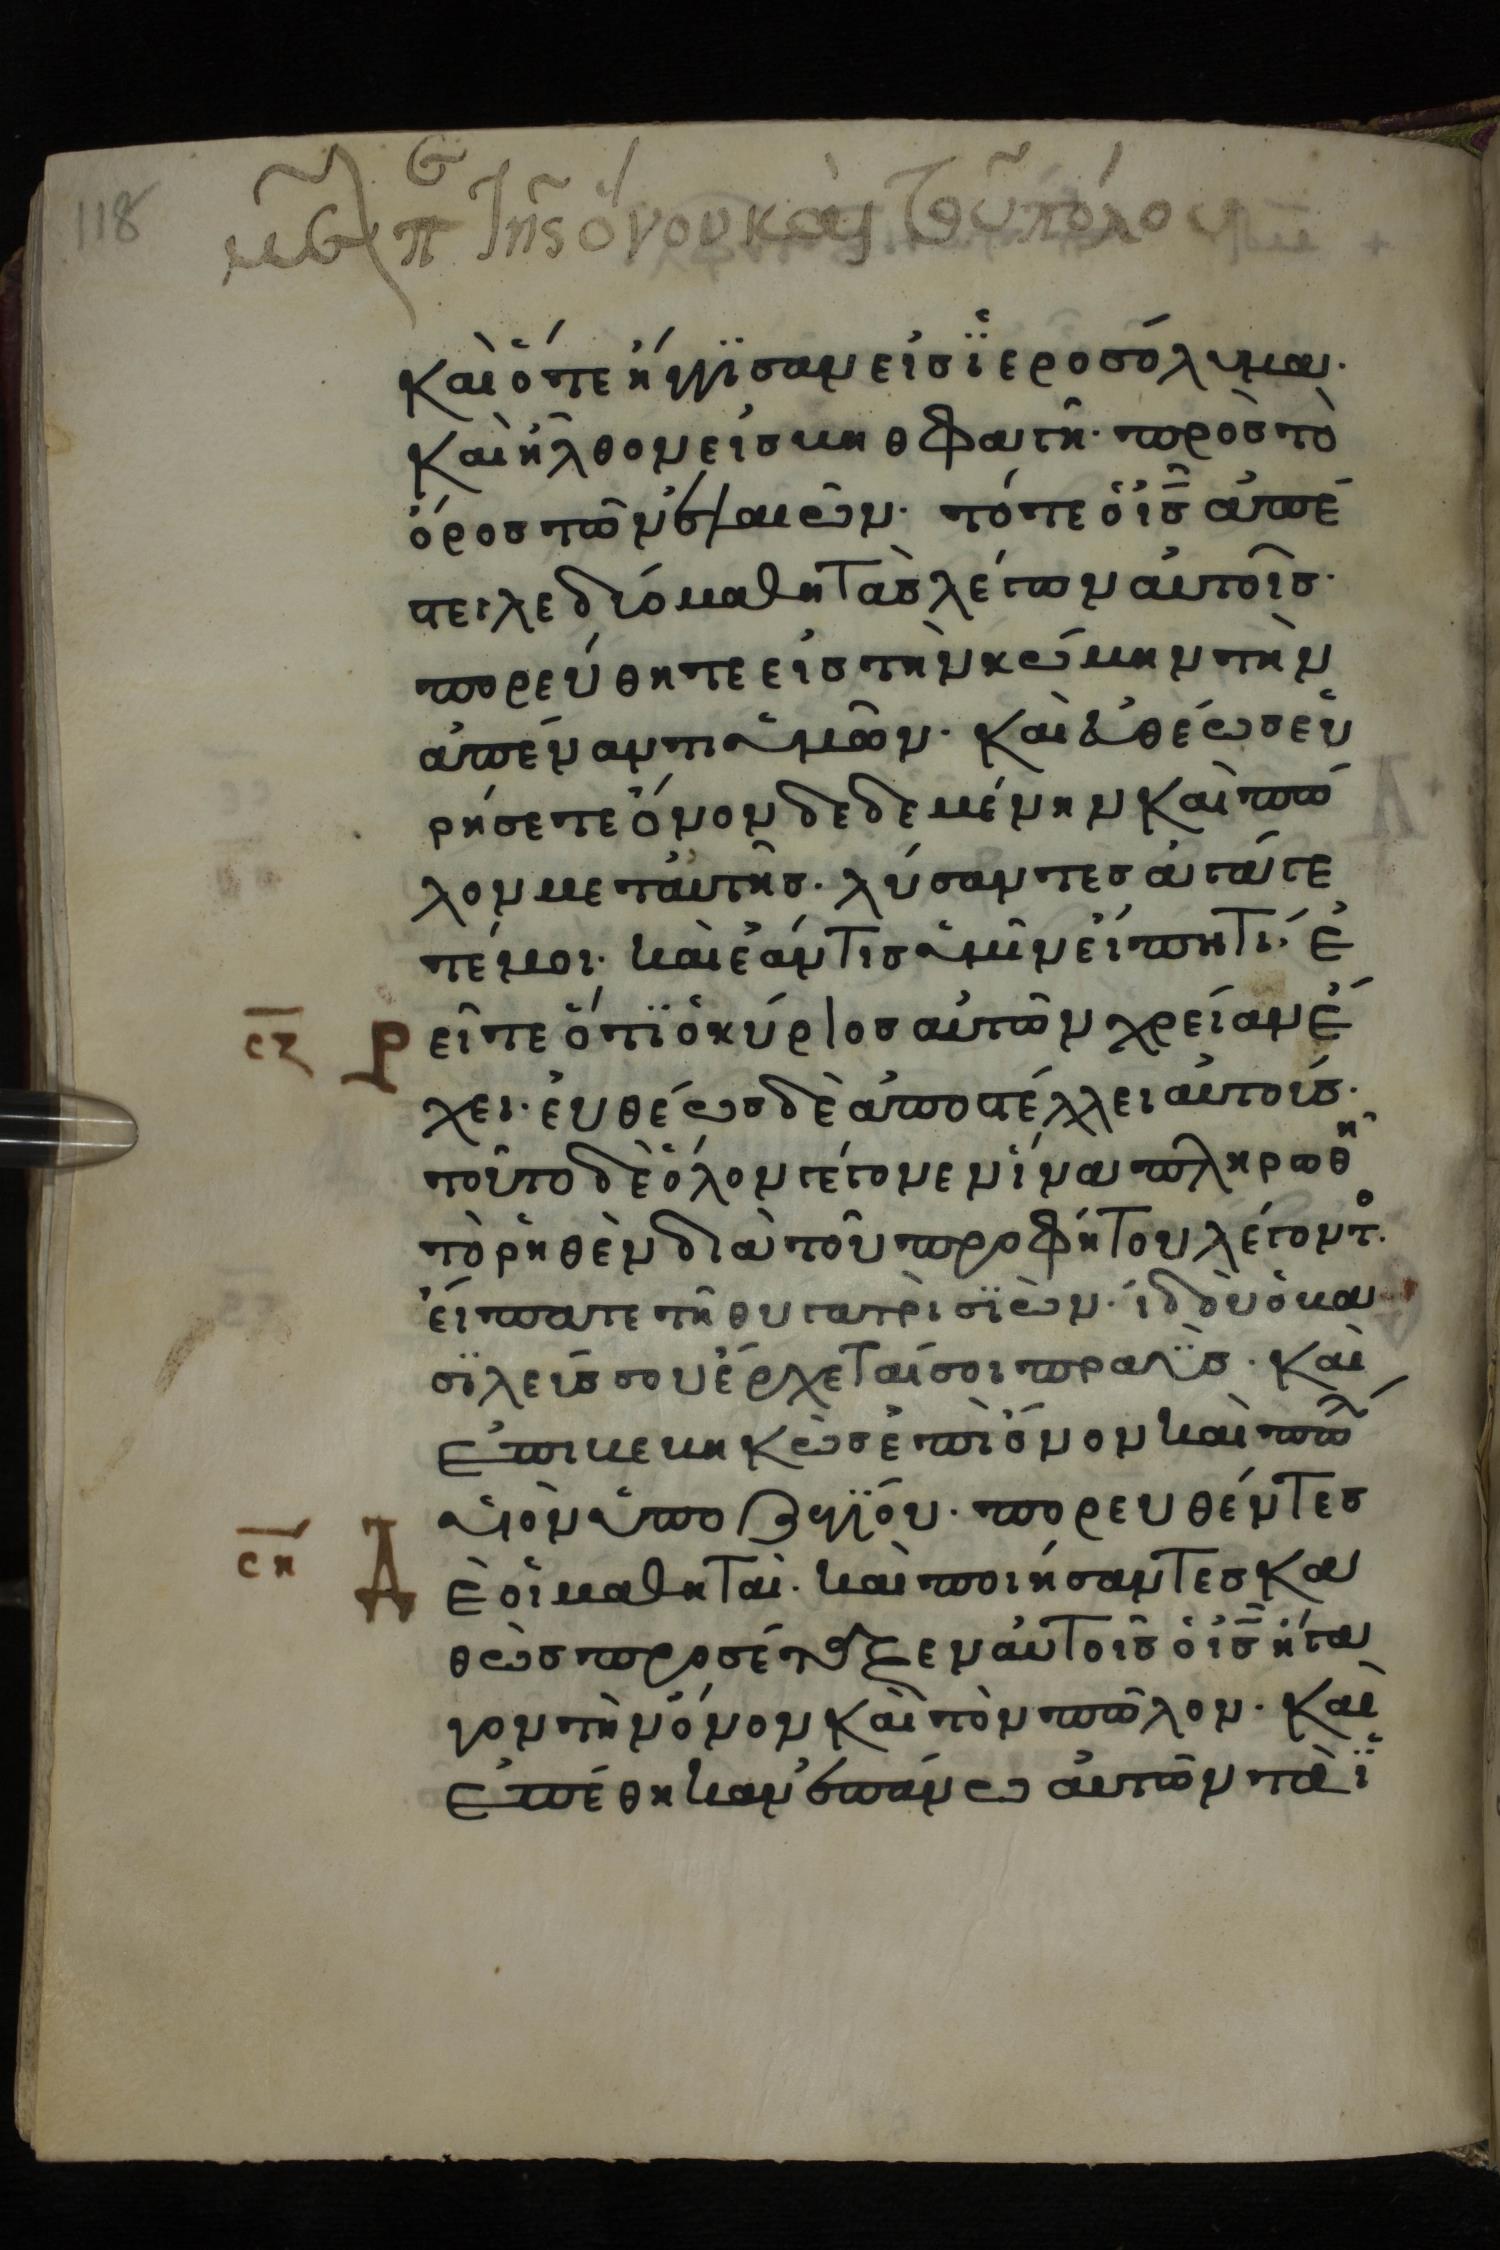 118
με π̅ τῆς ὄνου καὶ τοῦ πόλου
Καὶ ὅτε ἤγγϊσαν εἰς ϊἑροσόλυμα·
Καὶ ἦλθον εἰς βηθφαγῆ· πρὸς τὸ
ὄρος τῶν ἐλαιῶν· τότε ὁ ι̅ς̅ ἀπέ
στειλε δύο μαθητὰς λέγων αὐτοῖς·
πορεύθητε εἰς τὴν κώμην τὴν
ἀπέναντι ὑμῶν· Καὶ εὐθέως εὑ
ρήσετε ὄνον δεδεμένην Καὶ πώ
λον μετ αὐτῆς· λύσαντες ἀγάγε
τέ μοι· καὶ ἐάν τις ὑμῖν εἴπη τι· Ἐ
ςζ Ρ εῖτε ὅτϊ ὁ κύριος αὐτῶν χρείαν ἔ
χει· εὐθέως δὲ ἀποστέλλει αὐτούς·
τοῦτο δὲ ὅλον γέγονεν ἵνα πληρωθῆ
τὸ ῥηθὲν διὰ τοῦ προφήτου λέγοντο·
εἴπατε τῆ θυγατρὶ σϊών· ἰδοὺ ὁ βα
σϊλεύς σου ἔρχεταί σοι πραΰς· Καὶ
ἐπιβεβηκὼς ἐπὶ ὄνον καὶ πῶλ
υἱὸν ὑποζυγϊόυ· πορευθέντες
ςη Δ
Ὲ οἱ μαθηταὶ· καὶ ποιήσαντες Κα
θὼς προσέταξεν αὐτοῖς ὁ ι̅ς̅ ἤγα
γον τὴν ὄνον Καὶ τὸν πῶλον· Καὶ
ἐπέθηκαν ἐπάνω αὐτῶν τὰ ϊ